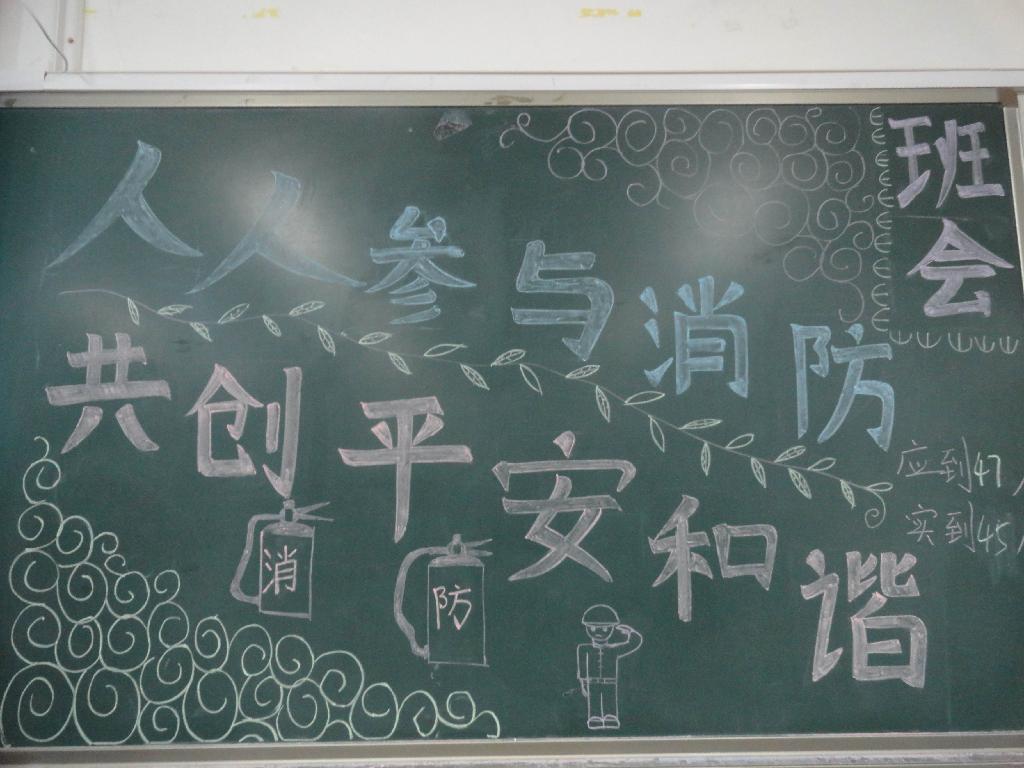 人人参与消防
共创平安和谐
班会
应到47人
实到45人
消
防